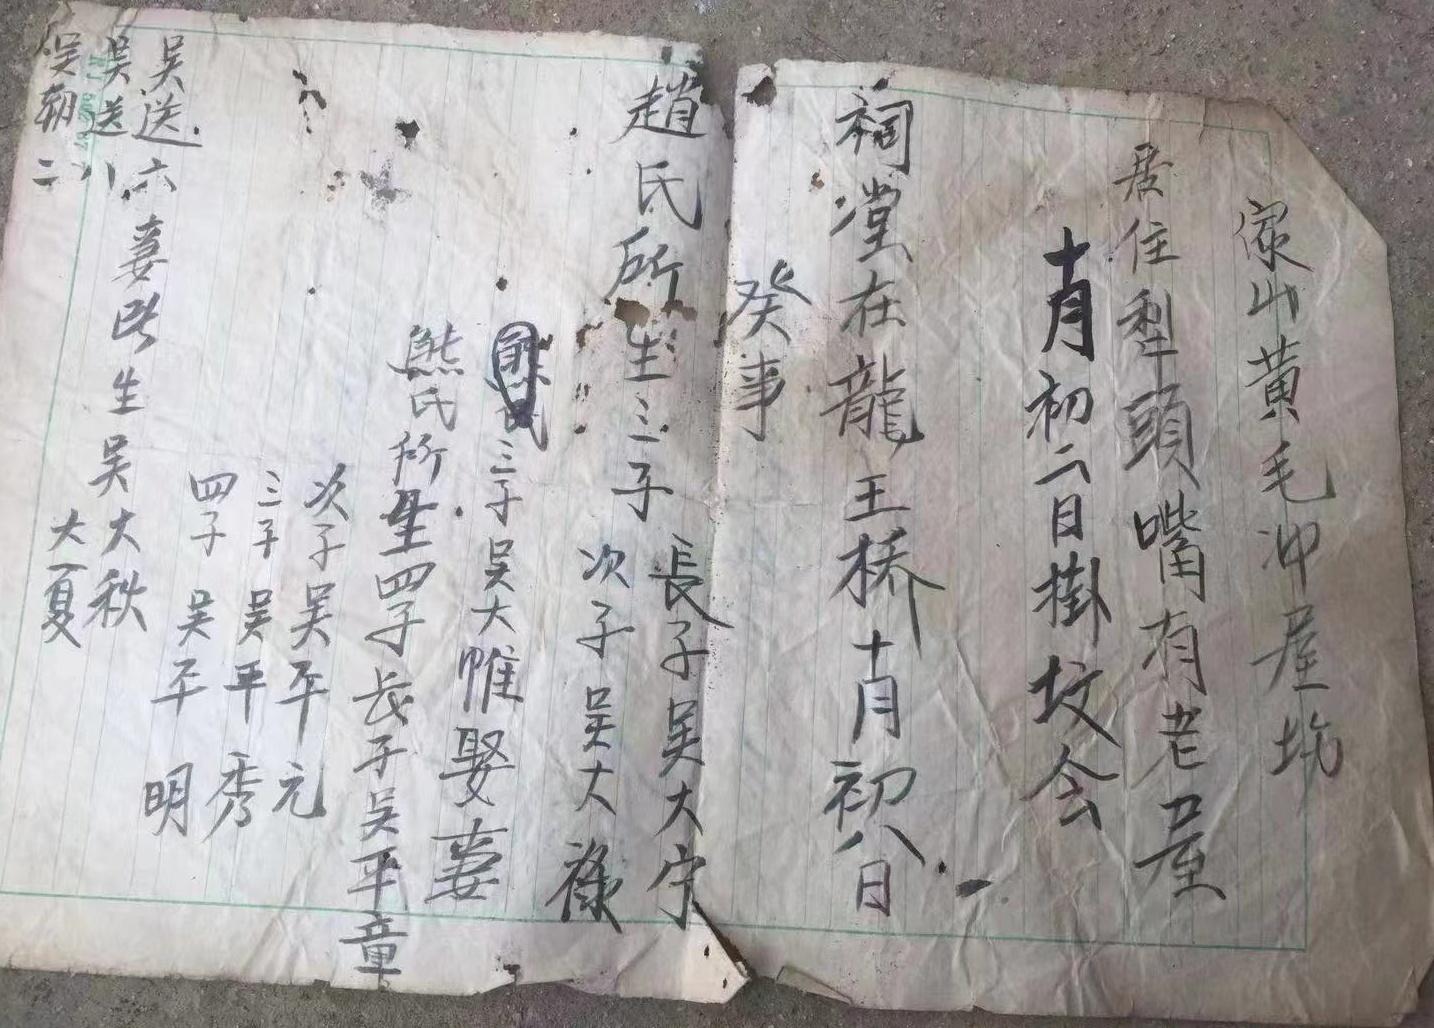 家山黄毛冲屋场
居住犁頭嘴有老屋
十月初二日掛坟会
祠堂在龍王桥十月初八日
癸事
趙氏所生三子
長子吴大守
次子吴大禄
三子吴大惟娶妻
熊氏所生四子长子吴平章
次子吴平元
三子吴平秀
四子吴平明
吴送六妻 生吴大秋
大夏
吴送八
吴朝二